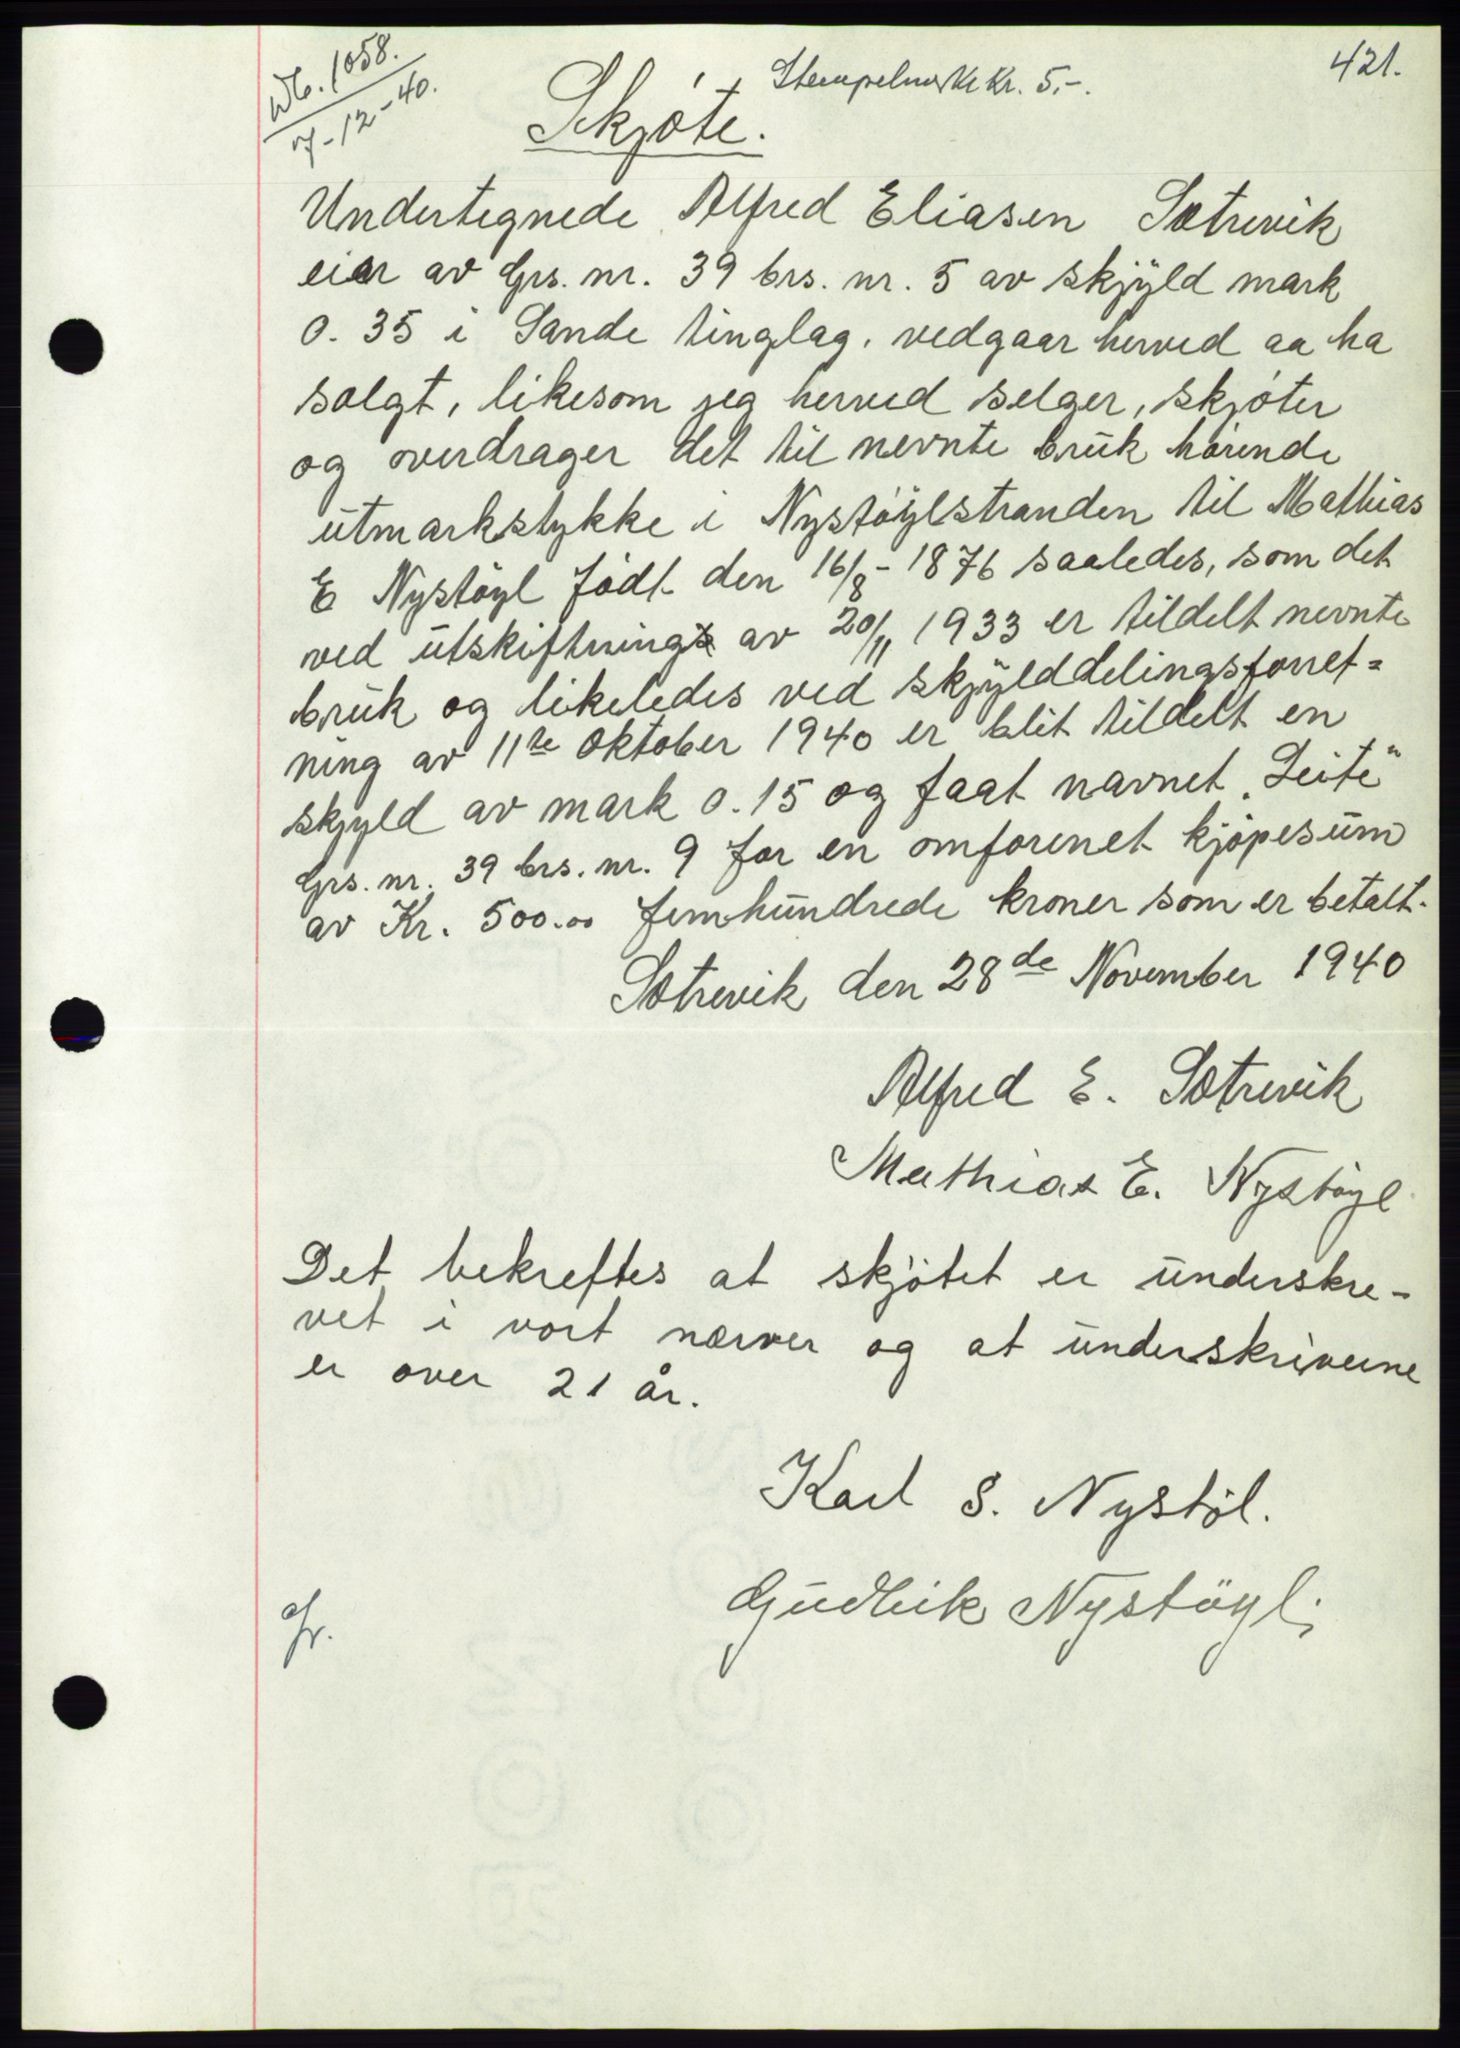 421.
Wb. 1058.
7-12-40.
Stempelmerke Kr. 5,-.
Skjøte.
Undertegnede Alfred Eliasen Sætrevik
eier av Grs. nr. 39 brs. nr. 5 av skjyld mark
0.35 i Sande tinglag, vedgaar herved aa ha
solgt, likesom jeg herved selger, skjøter
og overdrager det til nevnte bruk hørende
utmarkstykke i Nystøylstranden til Mathias
E Nystøyl født den 16/8-1876 saaledes, som det
ved utskiftning av 20/11 1933 er tildelt nevnte
bruk og likeledes ved skjylddelingsforret=
ning av 11te Oktober 1940 er blit tildelt en
skjyld av mark 0.15 og faat navnet „Leite"
Grs. nr. 39 brs. nr. 9 for en omforenet kjøpesum
av Kr. 500.00 femhundrede kroner som er betalt.
Sætrevik den 28de November 1940
Alfred E. Sætrevik
Mathias E. Nystøyl
Det bekreftes at skjøtet er underskre-
vet i vort nærver og at underskriverne
er over 21 år.
Karl S. Nystøl.
Gudleik Nystøyl.